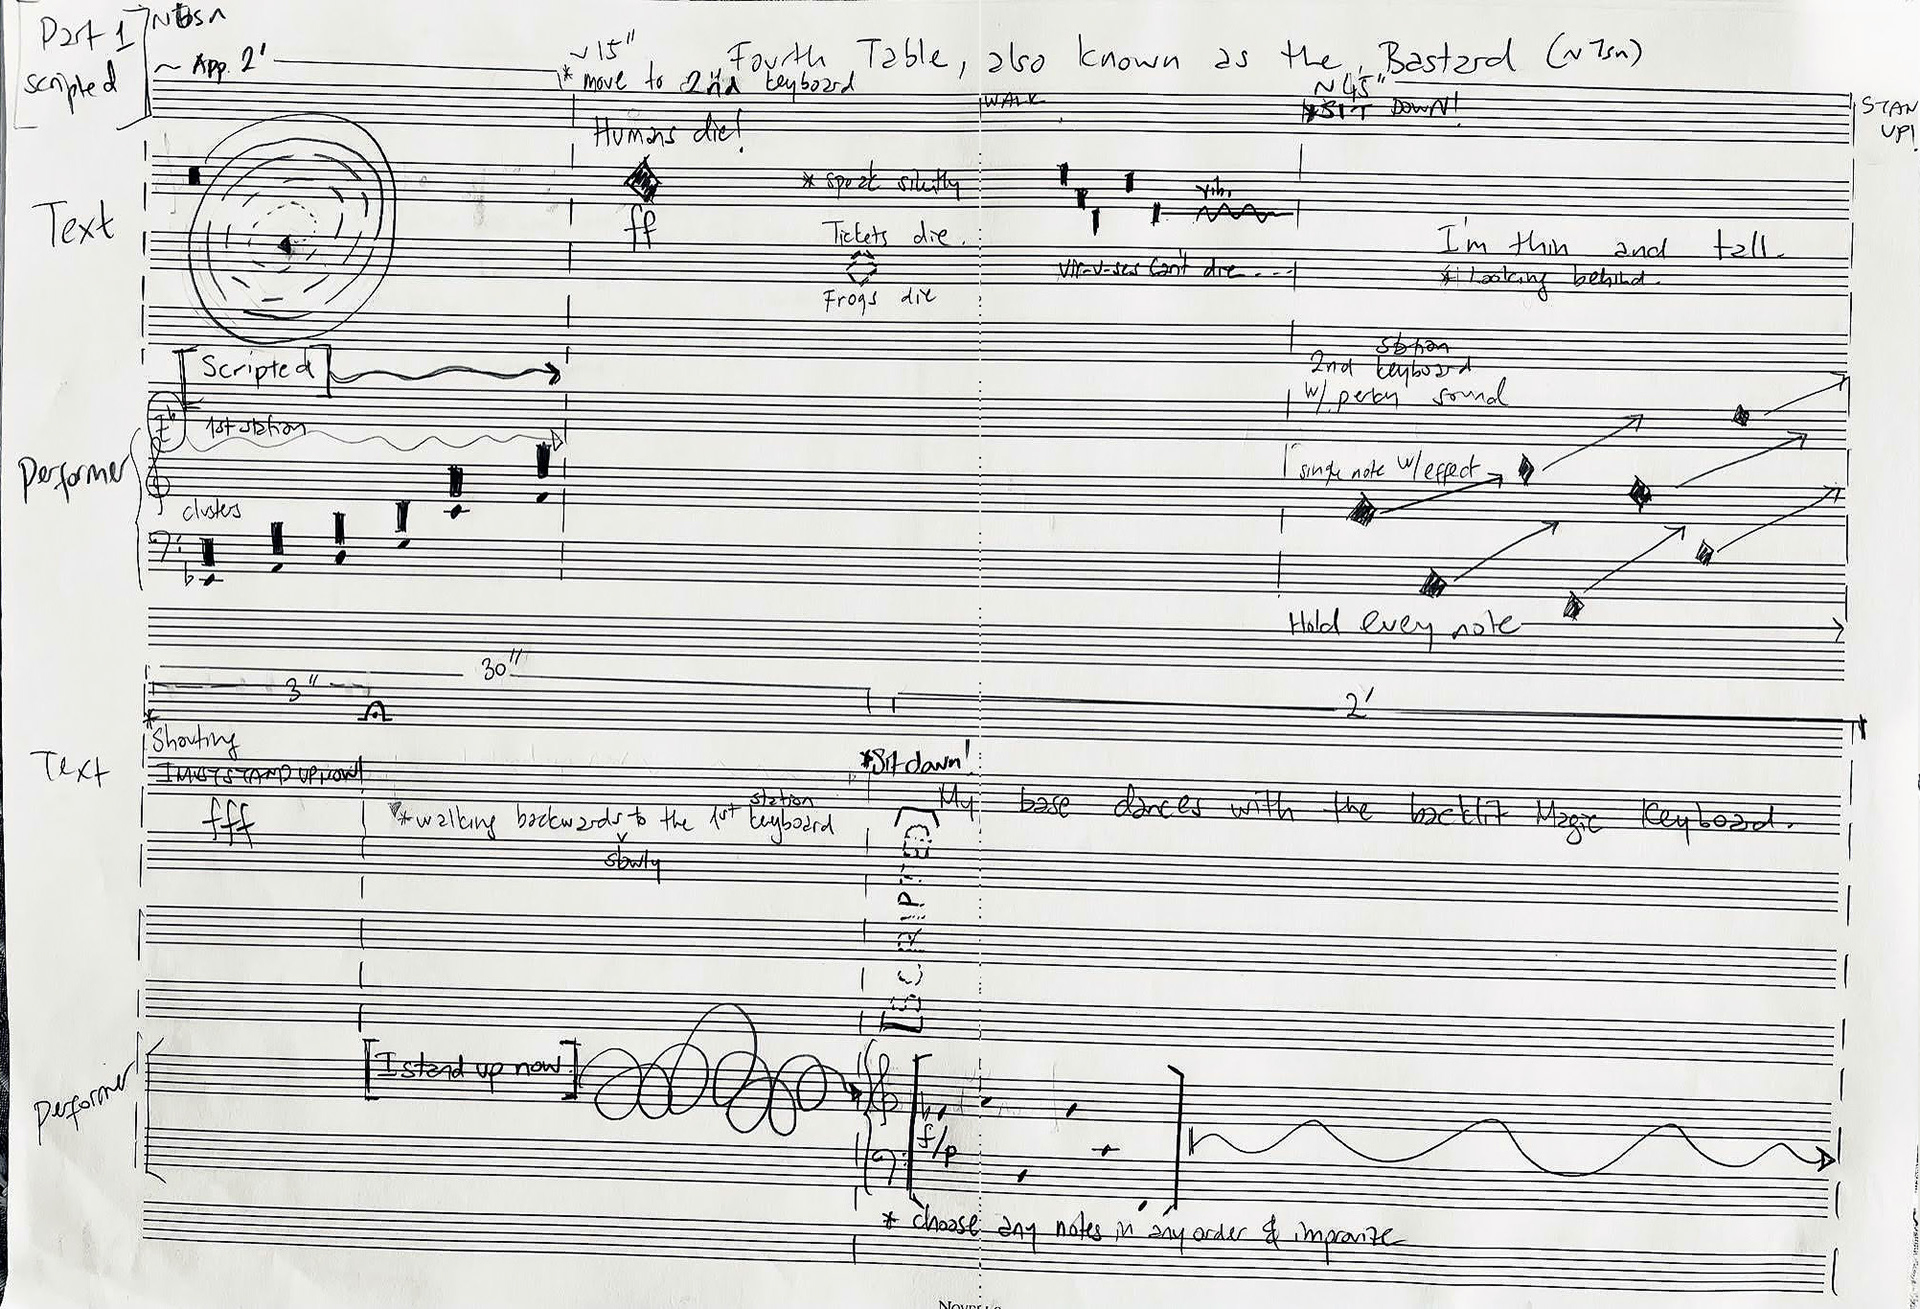 Part 1
scripted
~ App. 2'
~15"
* move to 2nd keyboard
Fourth Table, also known as the Bastard (~7sn)
WALK
~45"
*SIT DOWN!
STAN
UP!
Text
Humans die!
ff
* speak silently
Tickets die.
Frogs die
vib.
Vir-u-ses can't die
I'm thin and tall.
* Looking behind.
[Scripted]
Performer
1st station
clusters
station
2nd keyboard
w/ perky sound
single note w/ effect
Hold every note
30"
3"
2'
Text
* Shouting
I MUST STAND UP NOW!
fff
* walking backwards to the 1st keyboard
station
slowly
*Sit down!
My base dances with the backlit Magic Keyboard.
[SCRIPTED]
Performer
[I stand up now]
f/p
* choose any notes in any order & improvize